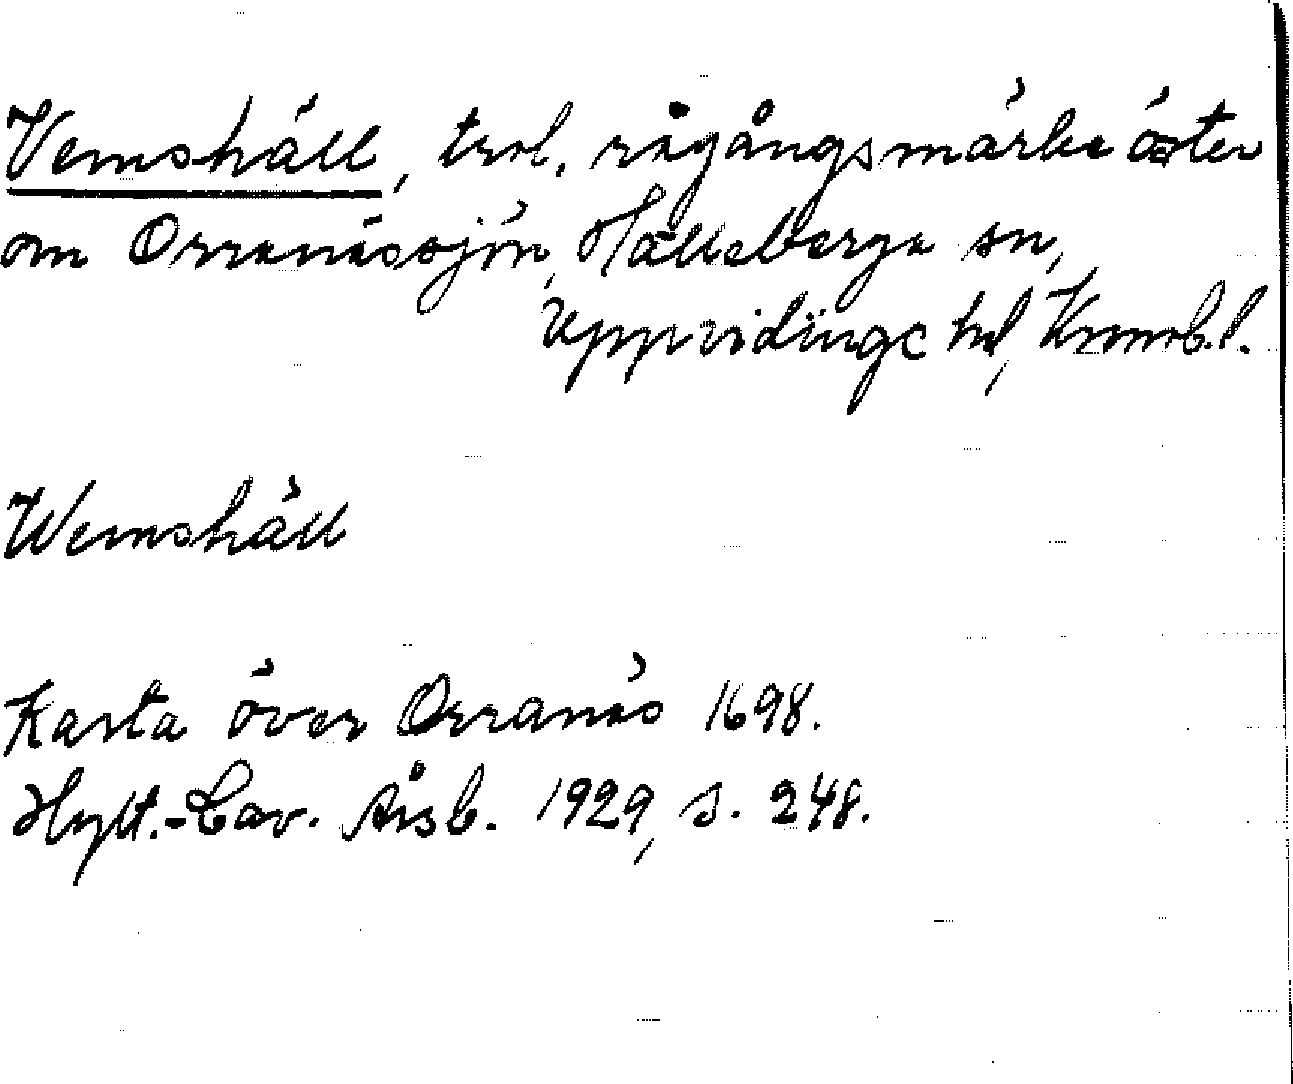 Vemshäll, trol. rågångsmärke öster
om Orranässjön, Hälleberga sn,
Uppvidinge hd, Kronob. l.
Wemshäll
Karta över Orranäs 1698.
Hylt.-Cav. Årsb. 1929, s. 248.